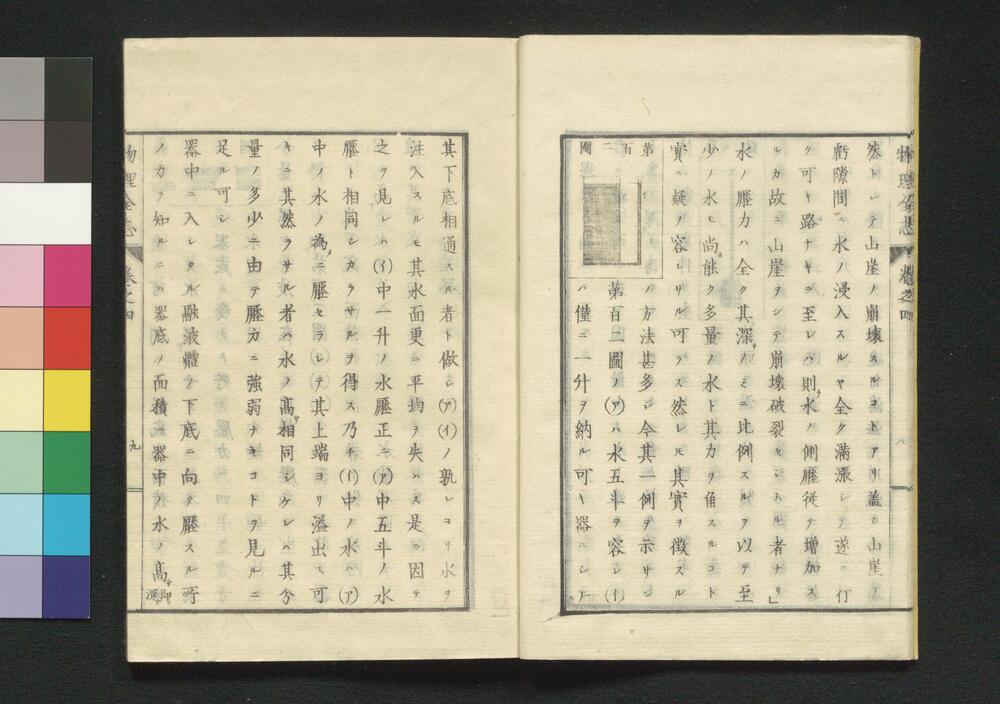 物理全志 卷之四
然トシテ山崖ノ崩壞スルコトアリ蓋シ山崖ノ
罅隙間ニ水ノ浸入スルヤ全ク滿漲シテ遂ニ行
ク可キ路ナキニ至レハ則水ノ側壓從テ增加ス
ルカ故ニ山崖ヲシテ崩壞破裂セシムル者ナリ」
水ノ壓力ハ全ク其深ノミニ比例スルヲ以テ至
少ノ水モ尚能ク多量ノ水ト其力ヲ角スルコト
實ニ疑ヲ容レサル可ラス然レモ其實ヲ徵スル
第百二圖
ノ方法甚多シ今其一例ヲ示サン
第百二圖ノ(ア)ハ水五斗ヲ容レ(イ)
ハ僅ニ一升ヲ納ル可キ器ニシテ
其下底相通スル者ト做シ(ア)(イ)ノ孰レヨリ水ヲ
注入スルモ其水面更ニ平均ヲ失ハス是ニ因テ
之ヲ見レハ(イ)中一升ノ水壓正ニ(ア)中五斗ノ水
壓ト相同シカラサルヲ得ス乃チ(イ)中ノ水ハ(ア)
中ノ水ノ為ニ壓セラレテ其上端ヨリ溢出ス可
キニ其然ラサル者ハ水ノ高相同シケレハ其分
量ノ多少ニ由テ壓力ニ強弱ナキコトヲ見ルニ
足ル可シ
器中ニ入レタル融液體ノ下底ニ向テ壓スル所
ノ力ヲ知ルニハ器底ノ面積ニ器中ノ水ノ高即深
物理全志 卷之四
九